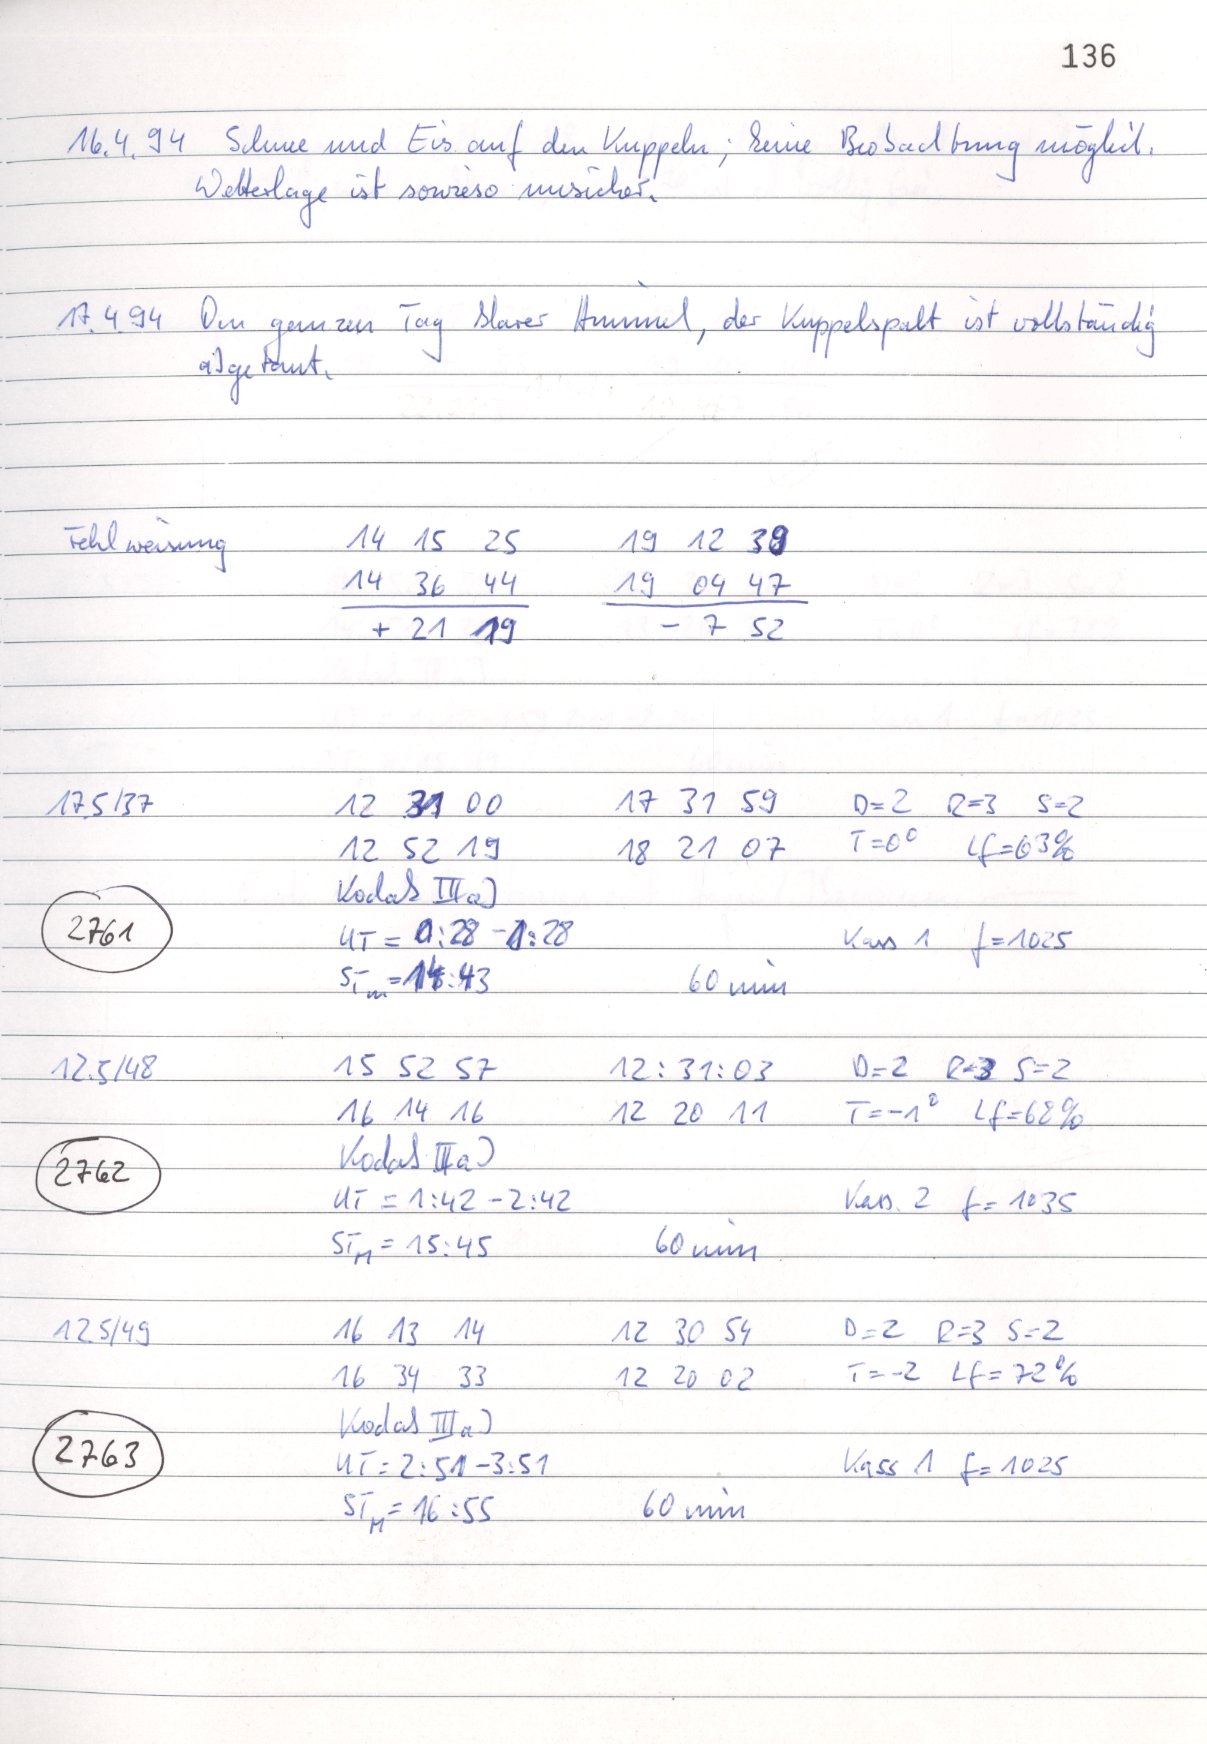 136
16.4.94 Schnee und Eis auf den Kuppeln; keine Beobachtung möglich.
Wetterlage ist sowieso unsicher.
17.4.94 Den ganzen Tag klarer Himmel, der Kuppelspalt ist vollständig
abgetaut.
Fehlweisung 14 15 25 19 12 39
14 36 44 19 04 47
+ 21 19 - 7 52
17.5/37 12 31 00 17 31 59 D=2 R=3 S=2
12 52 19 18 21 07 T=0° Lf=63%
Kodak IIIaJ
2761 UT = 0:28 - 1:28 Kass 1 f=1025
STm = 14:43 60 min
12.5/48 15 52 57 12:31:03 D=2 R=3 S=2
16 14 16 12 20 11 T=-1° Lf=68%
Kodak IIIaJ
2762 UT = 1:42 - 2:42 Kass. 2 f=1035
STM = 15:45 60 min
12.5/49 16 13 14 12 30 54 D=2 R=3 S=2
16 34 33 12 20 02 T=-2 Lf=72%
Kodak IIIaJ
2763 UT = 2:51 - 3:51 Kass 1 f=1025
STM = 16:55 60 min